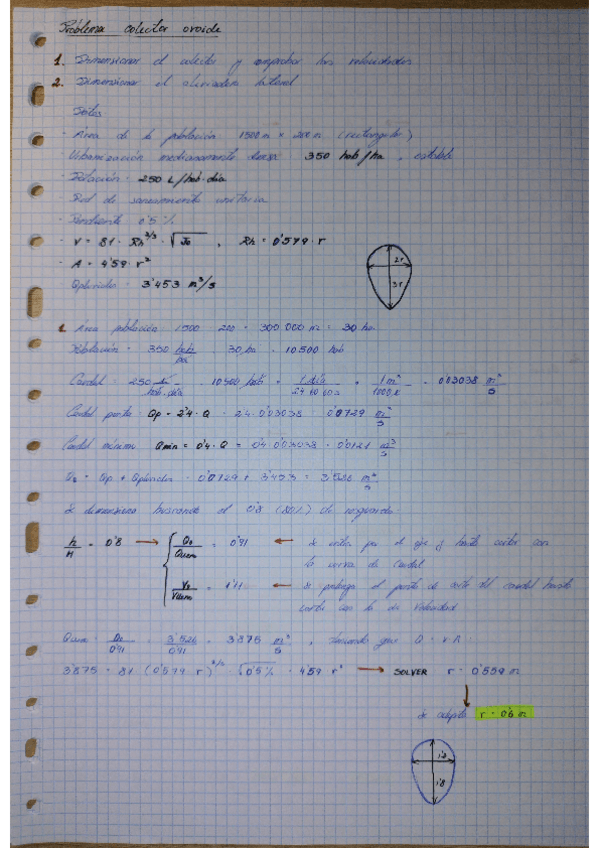 Problema colector ovoide
1. Dimensionar el colector y comprobar las velocidades
2. Dimensionar el aliviadero lateral
Datos
- Área de la población 1500 m × 200 m (rectangular)
- Urbanización medianamente densa 350 hab/ha, estable
- Dotación: 250 L/hab·día
- Red de saneamiento unitaria
- Pendiente 0'5 %
- V = 81 · Rh^2/3 · √J0 , Rh = 0'579 · r
- A = 4'59 · r²
- Qpluviales = 3'453 m³/s
2r
3r
1. Área población 1500 · 200 = 300 000 m² = 30 ha
Población = 350 hab/ha · 30 ha = 10500 hab
Caudal = 250 L/hab·día · 10500 hab · 1 día/24·60·60 s · 1 m³/1000 L = 0'03038 m³/s
Caudal punta Qp = 2'4 · Q = 2'4 · 0'03038 = 0'0729 m³/s
Caudal mínimo Qmin = 0'4 · Q = 0'4 · 0'03038 = 0'0121 m³/s
= Qp + Qpluviales = 0'0729 + 3'453 = 3'526 m³/s
Se dimensiona buscando el 0'8 (80%) de
h/H = 0'8 → { Q0/Qlleno = 0'91 ← Se entra por el eje y hasta cortar con
la curva de caudal
V0/Vlleno = 1'11 ← Se prolonga el punto de corte del caudal hasta
cortar con la de velocidad
Qlleno = Q0/0'91 = 3'526/0'91 = 3'875 m³/s , que Q = V·A
3'875 = 81 · (0'579 r)^2/3 · √0'5% · 4'59 r² → SOLVER r = 0'559 m
Se adopta r = 0'6 m
1'8